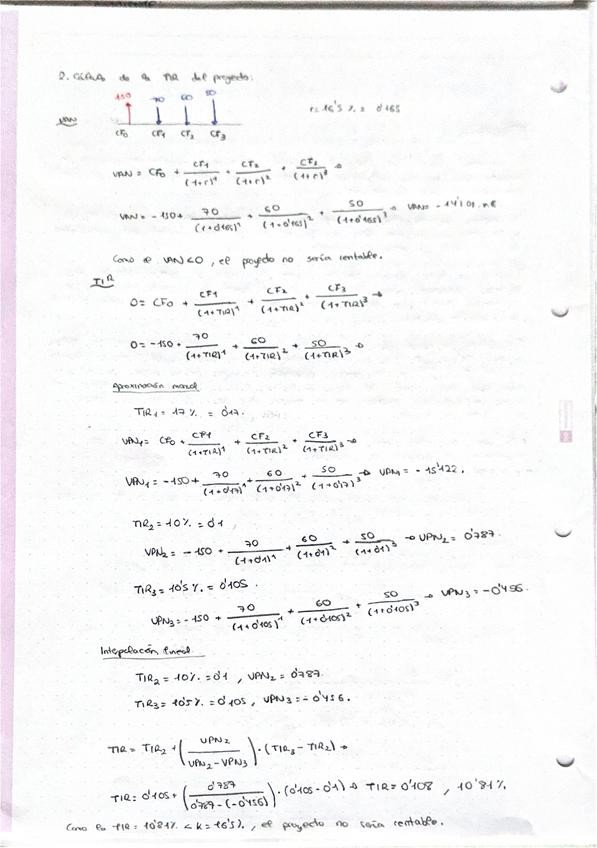 2. Cálculo de la TIR del proyecto:
150 70 60 50
VAN r = 16'5 % = 0'165
CF0 CF1 CF2 CF3
VAN = CF0 + CF1/(1+r)^1 + CF2/(1+r)^2 + CF3/(1+r)^3 →
VAN = -150 + 70/(1+0'165)^1 + 60/(1+0'165)^2 + 50/(1+0'165)^3 → VAN = -14'101. m€
Como el VAN<0, el proyecto no sería rentable.
TIR
0 = CF0 + CF1/(1+TIR)^1 + CF2/(1+TIR)^2 + CF3/(1+TIR)^3 →
0 = -150 + 70/(1+TIR)^1 + 60/(1+TIR)^2 + 50/(1+TIR)^3 →
Aproximación manual
TIR1 = 17 % = 0'17.
VPN1 = CF0 + CF1/(1+TIR)^1 + CF2/(1+TIR)^2 + CF3/(1+TIR)^3 →
VPN1 = -150 + 70/(1+0'17)^1 + 60/(1+0'17)^2 + 50/(1+0'17)^3 → VPN1 = -15'122.
TIR2 = 10 % = 0'1,
VPN2 = -150 + 70/(1+0'1)^1 + 60/(1+0'1)^2 + 50/(1+0'1)^3 → VPN2 = 0'787.
TIR3 = 10'5 % = 0'105.
VPN3 = -150 + 70/(1+0'105)^1 + 60/(1+0'105)^2 + 50/(1+0'105)^3 → VPN3 = -0'456.
Interpolación lineal
TIR2 = 10% = 0'1, VPN2 = 0'787.
TIR3 = 10'5% = 0'105, VPN3 = -0'456.
TIR = TIR2 + (VPN2/(VPN2 - VPN3)) · (TIR3 - TIR2) →
TIR = 0'105 + (0'787/(0'787 - (-0'456))) · (0'105 - 0'1) → TIR = 0'108, 10'81%.
Como la TIR = 10'81% < k = 16'5%, el proyecto no sería rentable.